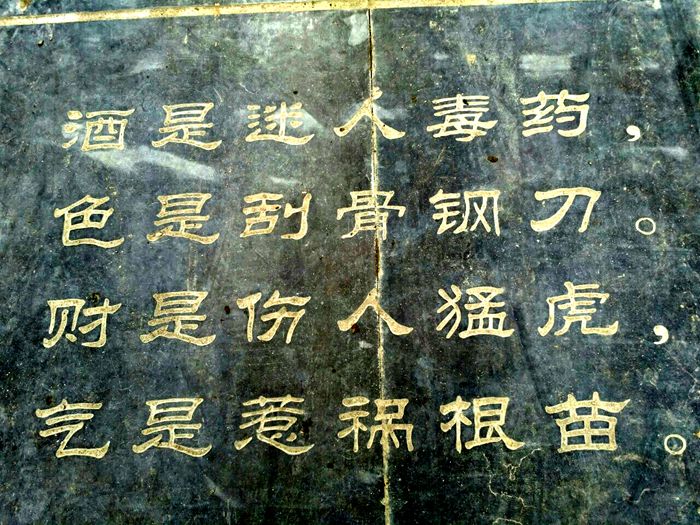 酒是迷人毒药，
色是刮骨钢刀。
财是伤人猛虎，
气是惹祸根苗。